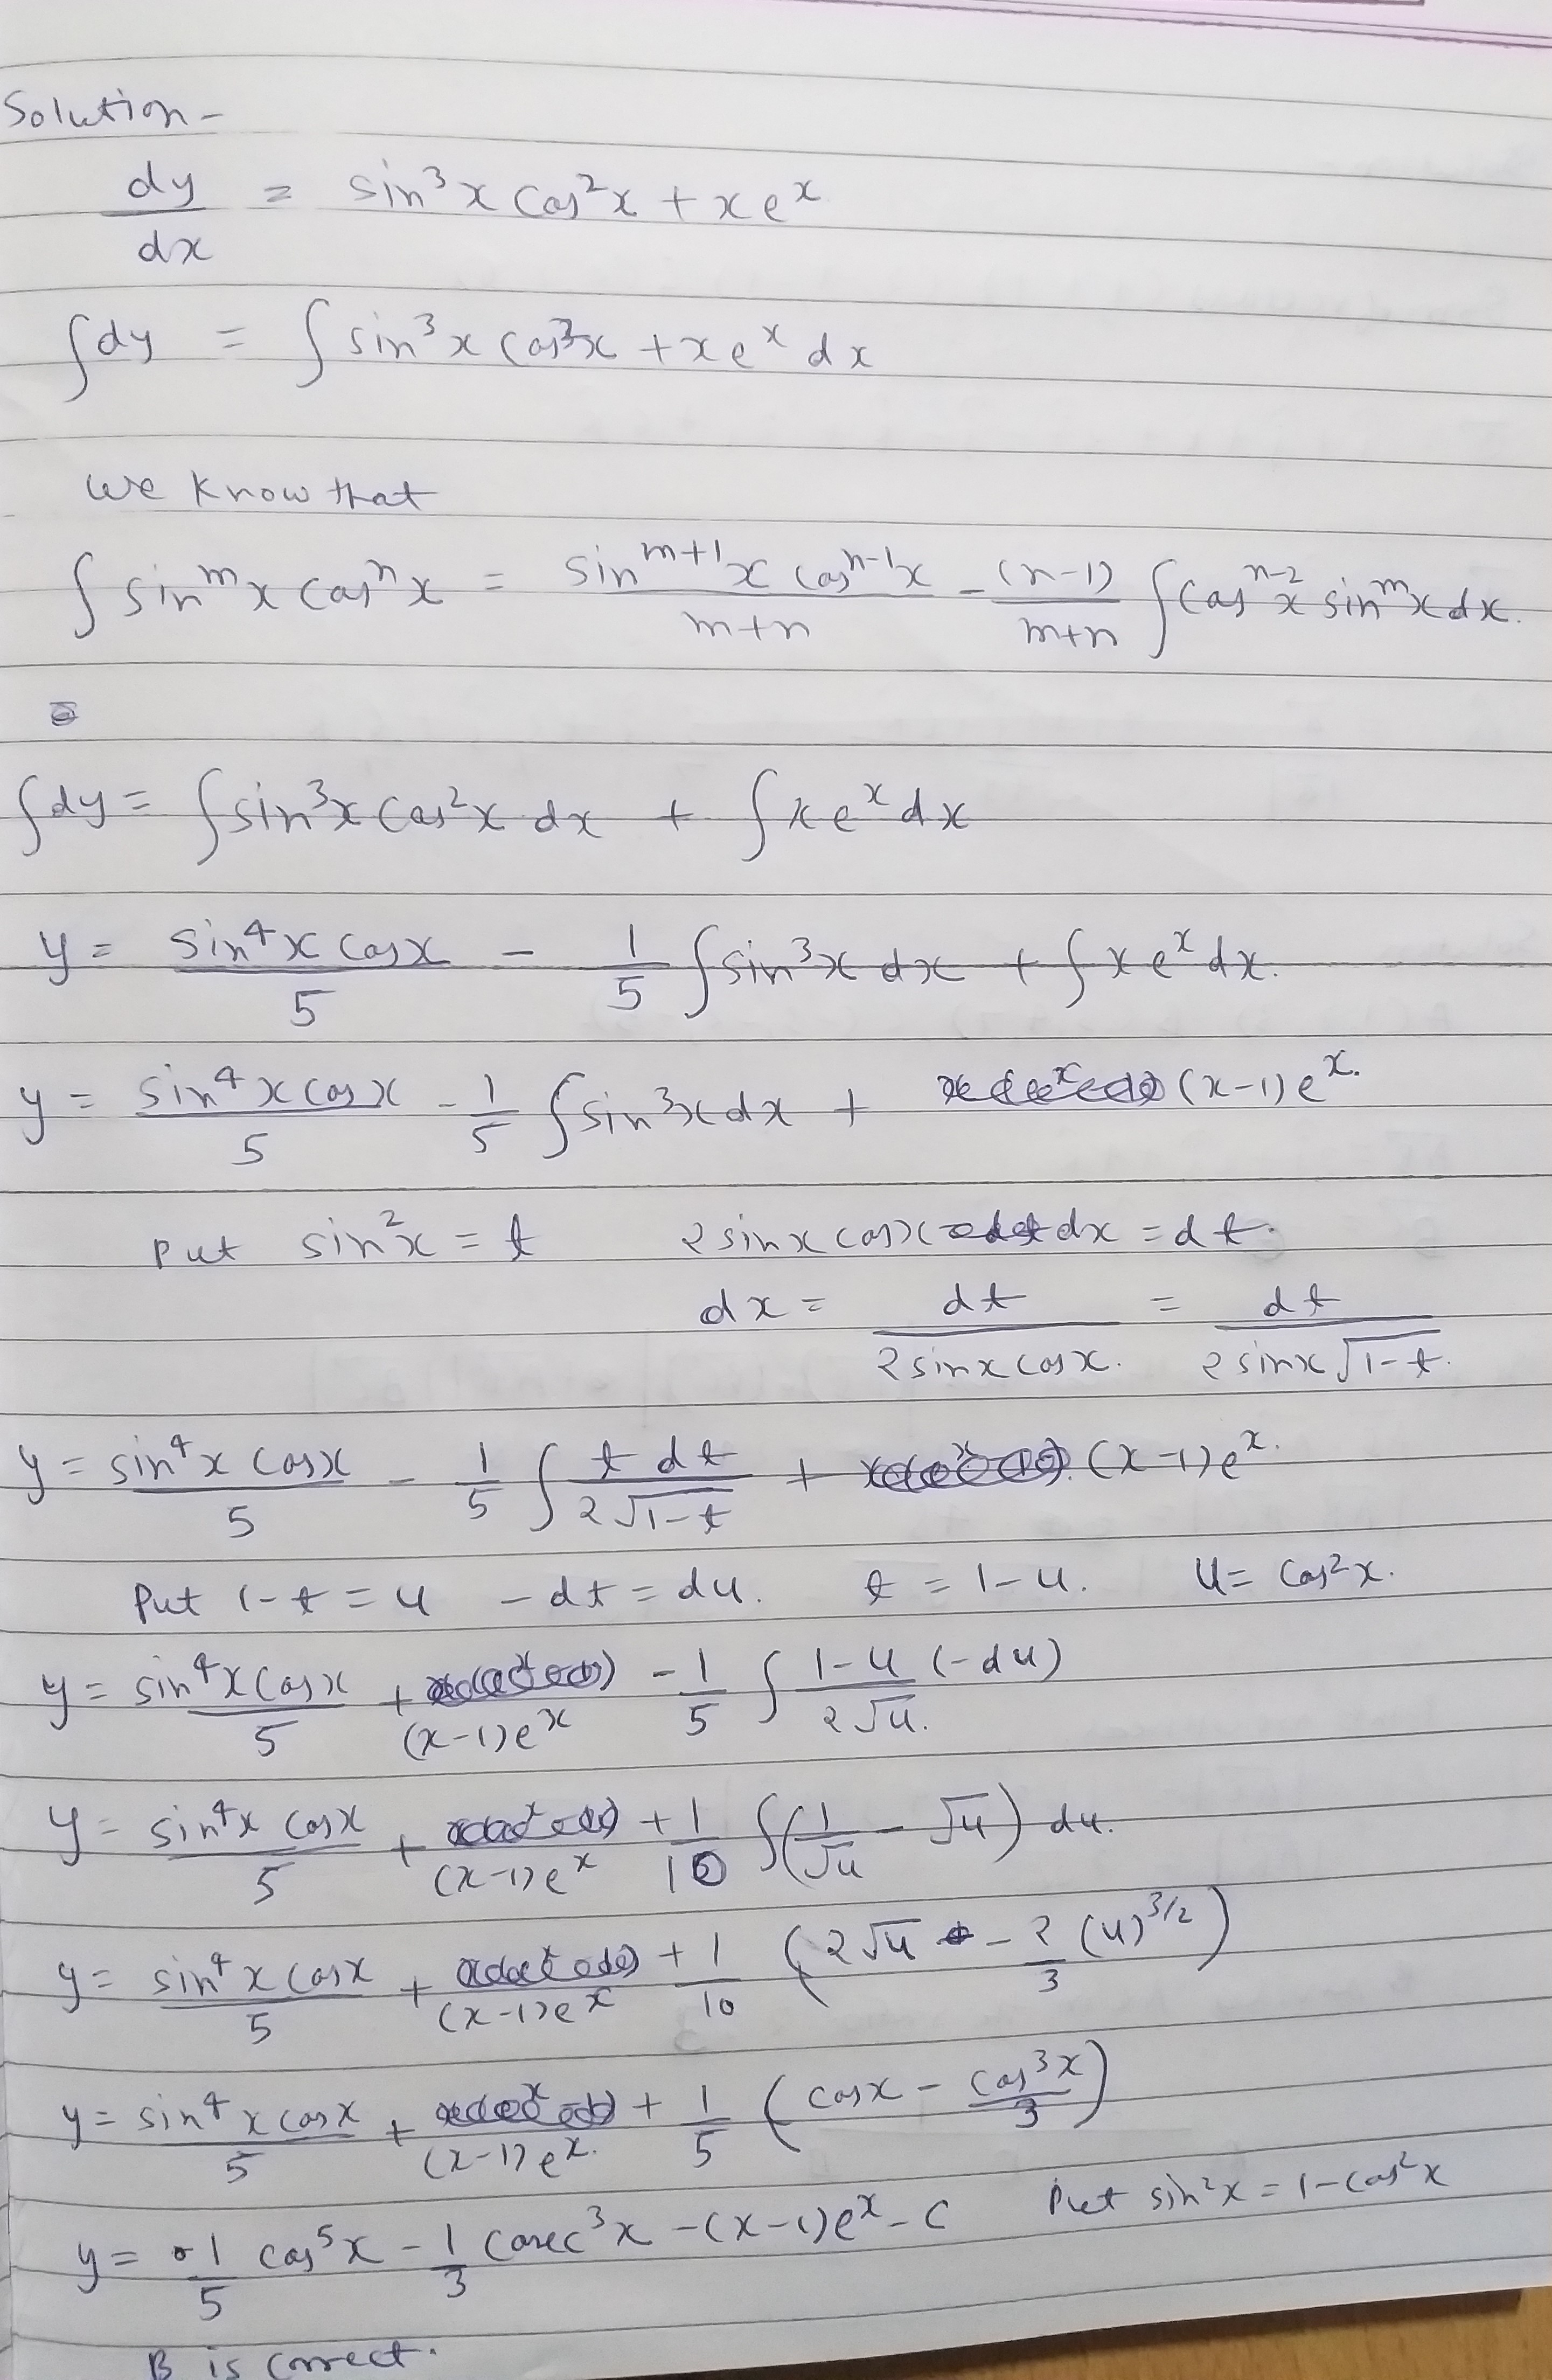 Solution -
dy/dx = sin³x cos²x + xeˣ
∫dy = ∫ sin³x cos²x + xeˣ dx
we know that
∫ sinᵐx cosⁿx = sinᵐ⁺¹x cosⁿ⁻¹x / m+n - (n-1)/m+n ∫ cosⁿ⁻²x sinᵐx dx.
∫dy = ∫sin³x cos²x dx + ∫xeˣdx
y = sin⁴x cosx / 5 - 1/5 ∫sin³x dx + ∫xeˣdx.
y = sin⁴x cosx / 5 - 1/5 ∫sin³x dx + (x-1)eˣ.
Put sin²x = t 2sinx cosx dx = dt.
dx = dt / 2sinx cosx. = dt / 2sinx√1-t.
y = sin⁴x cosx / 5 - 1/5 ∫ t dt / 2√1-t + (x-1)eˣ.
Put 1-t = u -dt = du. t = 1-u. u = cos²x.
y = sin⁴x cosx / 5 + (x-1)eˣ - 1/5 ∫ 1-u / 2√u. (-du)
y = sin⁴x cosx / 5 + (x-1)eˣ + 1/10 ∫(1/√u - √u) du.
y = sin⁴x cosx / 5 + (x-1)eˣ + 1/10 (2√u - 2/3 (u)³ᐟ²)
y = sin⁴x cosx / 5 + (x-1)eˣ. + 1/5 (cosx - cos³x/3)
y = 1/5 cos⁵x - 1/3 cosec³x - (x-1)eˣ - C Put sin²x = 1-cos²x
B is correct.